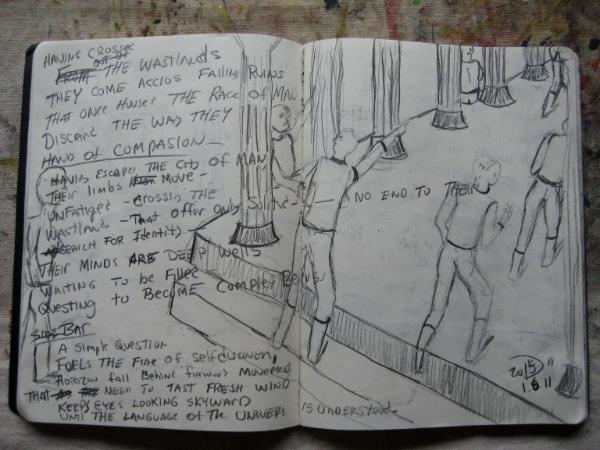 HAVING CROSSED
THE WASTLANDS
THEY COME ACCIOS FALLING RUINS
THAT ONCE HOUSED THE RACE OF MAN
DISCARD THE WAY THEY
HAND OF COMPASION
HAVING ESCAPED THE CITY OF MAN
THEIR LIMBS MOVE -
UNFATIGED - CROSSING THE
WASTLAND - THAT OFFER ONLY SOLITUD - NO END TO THEIR
SEARCH FOR IDENTITY -
THEIR MINDS ARE DEEP WELLS
WAITING TO BE FILLED
QUESTING TO BECOME COMPLEX BEINGS
SIDE BAR
A SIMPLE QUESTION
FUELS THE FIRE OF
HORIZON FALL BEHIND FORWARD MOVEMENT
THAT NEED TO TAST FRESH WIND
KEEPS EYES LOOKING SKYWARD
UNTIL THE LANGUAGE OF THE UNIVERS IS UNDERSTOOD.
2015
1.8 11